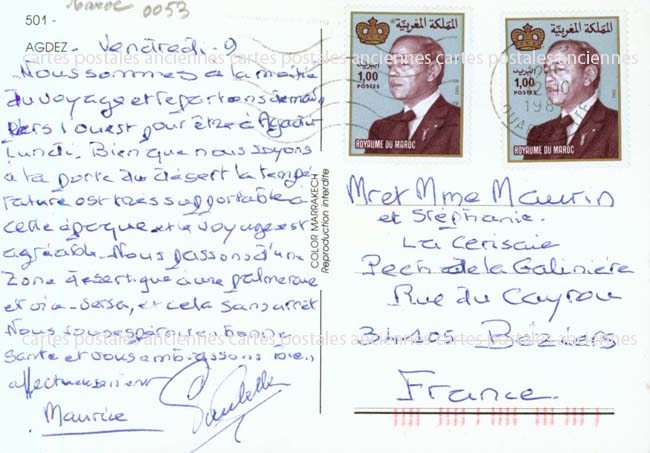 Maroc 0053
501 -
AGDEZ. Vendredi. 9
Nous sommes a la moitié
du voyage et repartons demain
vers l'ouest pour être à Agadir
Lundi. Bien que nous soyons
à la porte du désert la tempé
rature est très supportable à
cette époque et le voyage est
agréable. Nous passons d'une
zone désertique à une palmeraie
et vice-versa, et cela sans arrêt
Nous vous espérons en bonne
santé et vous embrassons bien
affectueusement
Maurice
COLOR MARRAKECH
Reproduction interdite
المملكة المغربية
البريد
1,00
POSTES
ROYAUME DU MAROC
المملكة المغربية
1,00
POSTES
ROYAUME DU MAROC
Mr et Mme Maurin
et Stéphanie.
La Cerisaie
Pech de la Galinière
Rue du Cayrou
34105 Béziers
France.
cartes postales anciennes cartes postales anciennes cartes postales anciennes
cartes postales anciennes cartes postales anciennes cartes postales anciennes